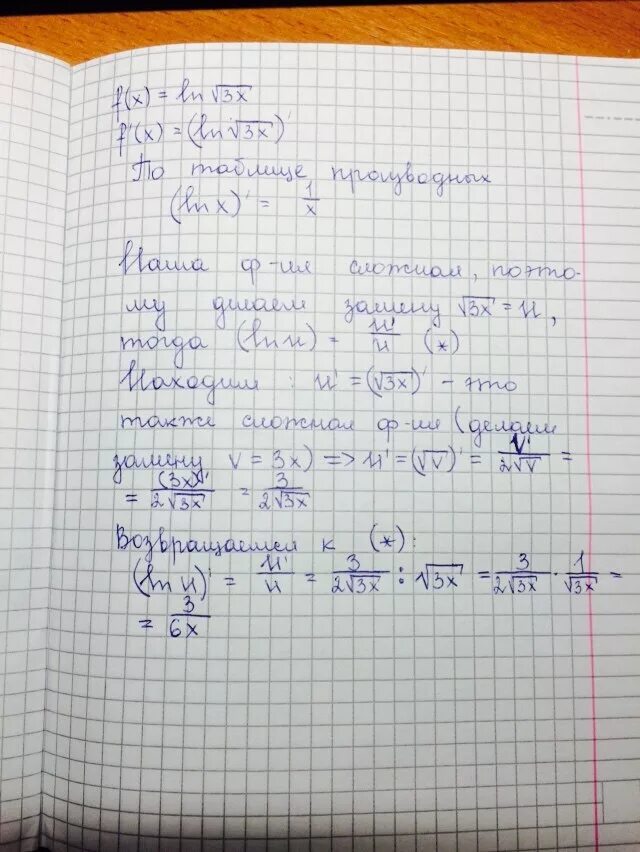 f(x) = ln √3x
f'(x) = (ln √3x)'
По таблице производных
(ln x)' = 1/x
Наша ф-ия сложная, поэто-
му делаем замену √3x = u,
тогда (ln u) = u'/u (*)
Находим: u' = (√3x)' - это
также сложная ф-ия (делаем
замену v = 3x) => u' = (√v)' = v'/2√v =
= (3x)'/2√3x = 3/2√3x
Возвращаемся к (*):
(ln u)' = u'/u = 3/2√3x : √3x = 3/2√3x · 1/√3x =
= 3/6x